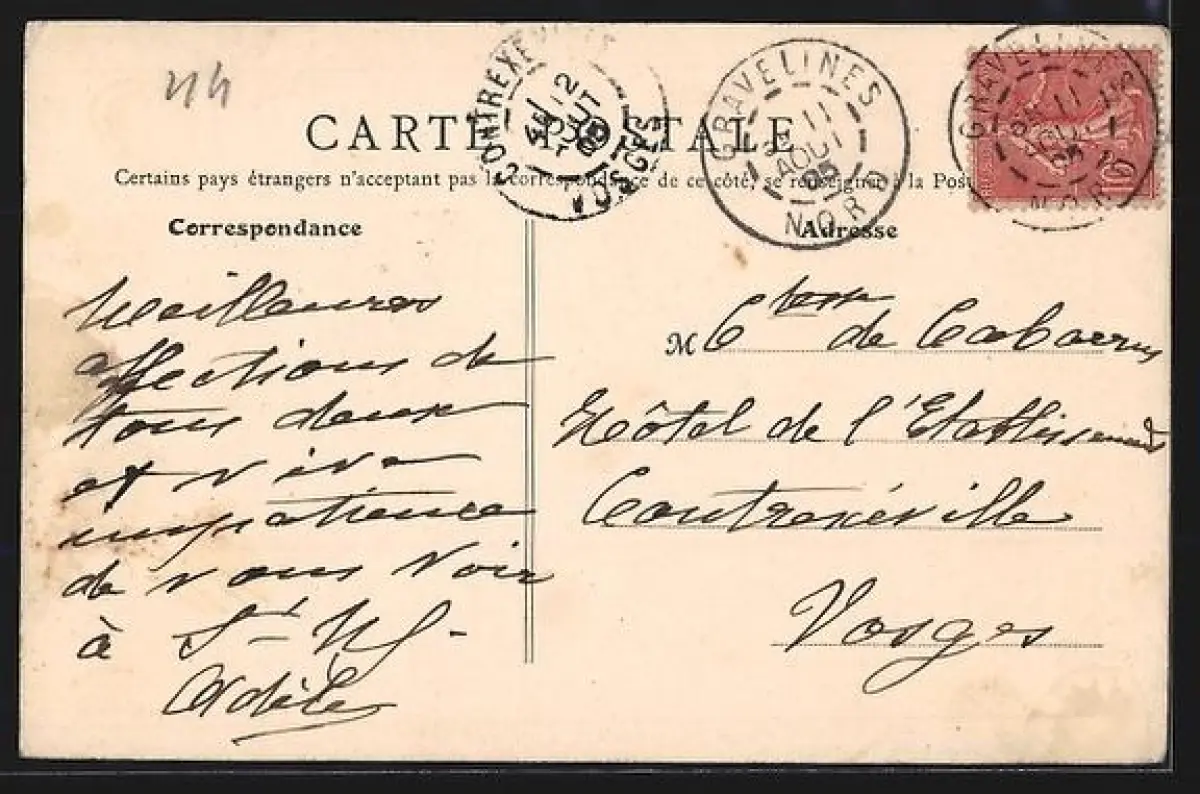 44
CARTE POSTALE
Certains pays étrangers n'acceptent pas la correspondance de ce côté, se renseigner à la Poste
CONTREXEVILLE
VOSGES
12
AOUT
05
GRAVELINES
11
AOUT
05
NORD
GRAVELINES
11
AOUT
05
NORD
10
Correspondance
Adresse
Meilleures
affections de
tous deux
et vive
impatience
de vous voir
à St-
Adèle
M Ctesse de Cabarrus
Hôtel de l'Etablissement
Contrexéville
Vosges